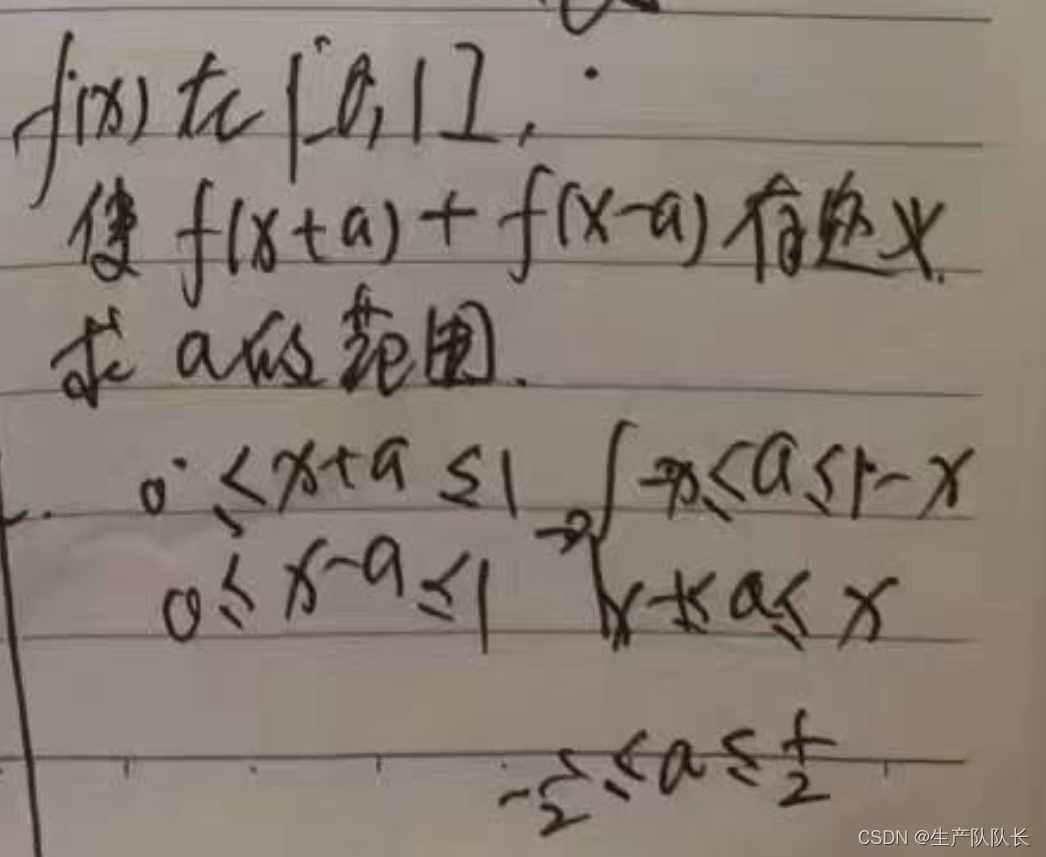 f(x) 在 [0,1],
使 f(x+a) + f(x-a) 有意义.
求 a的范围.
0 ≤ x+a ≤ 1 → { -x ≤ a ≤ 1-x
0 ≤ x-a ≤ 1 x-1 ≤ a ≤ x
-1/2 ≤ a ≤ 1/2
CSDN @生产队队长